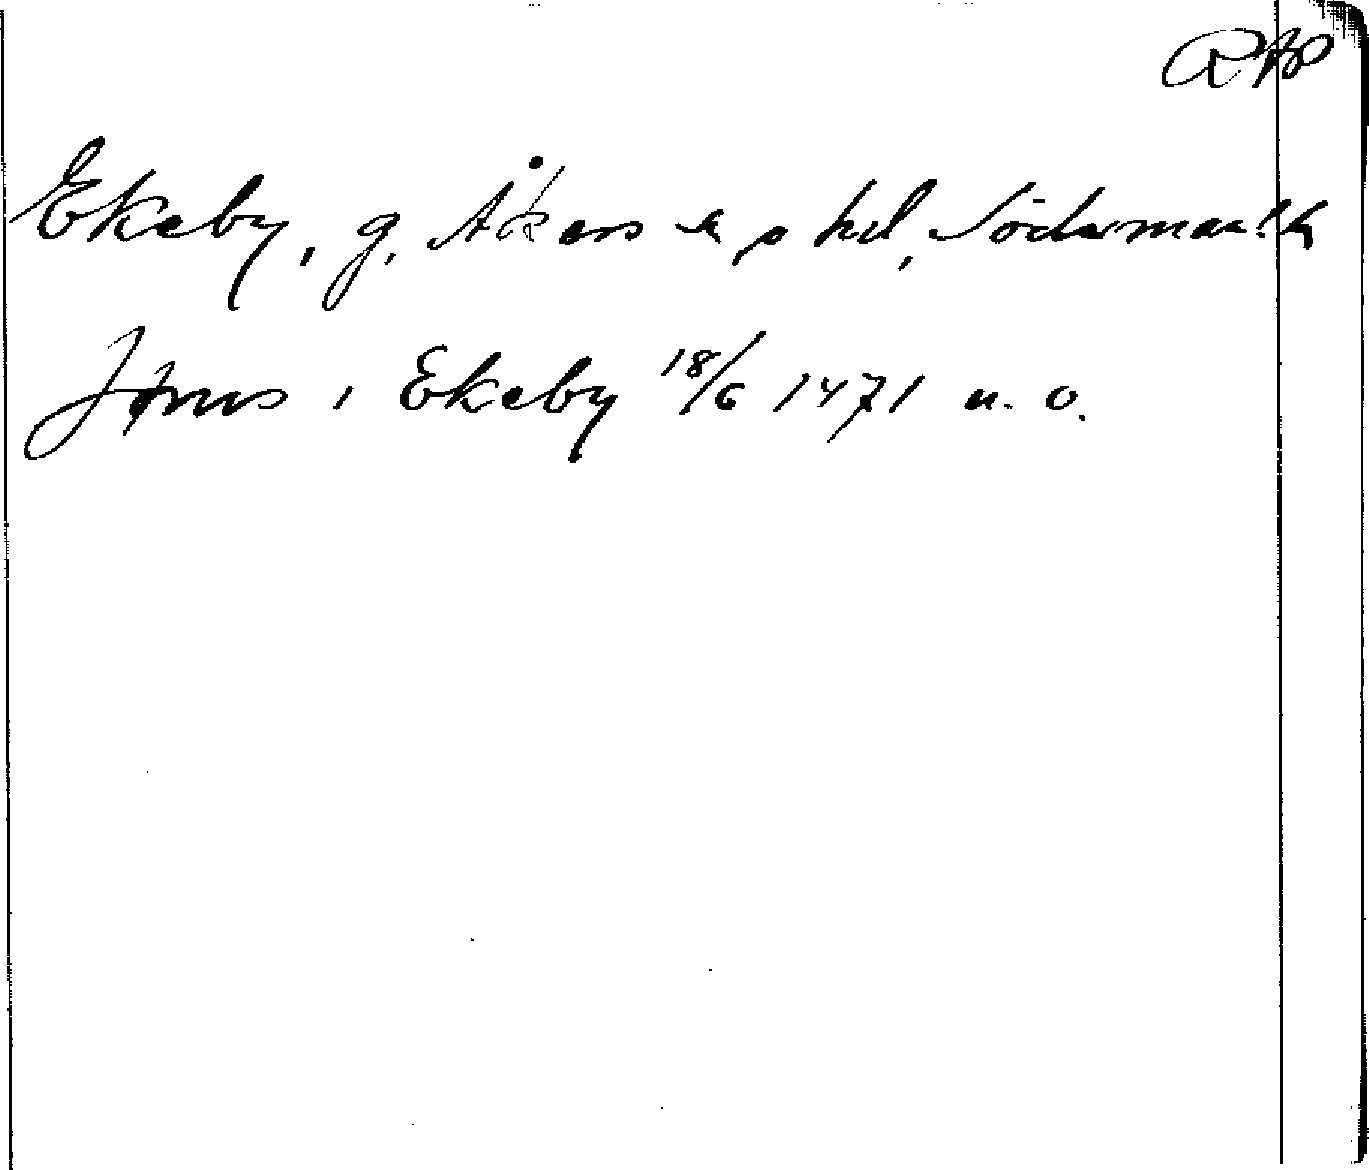 Ekeby, g. Åkers s o hd, Söderman
Jöns i Ekeby 18/6 1471 u. o.